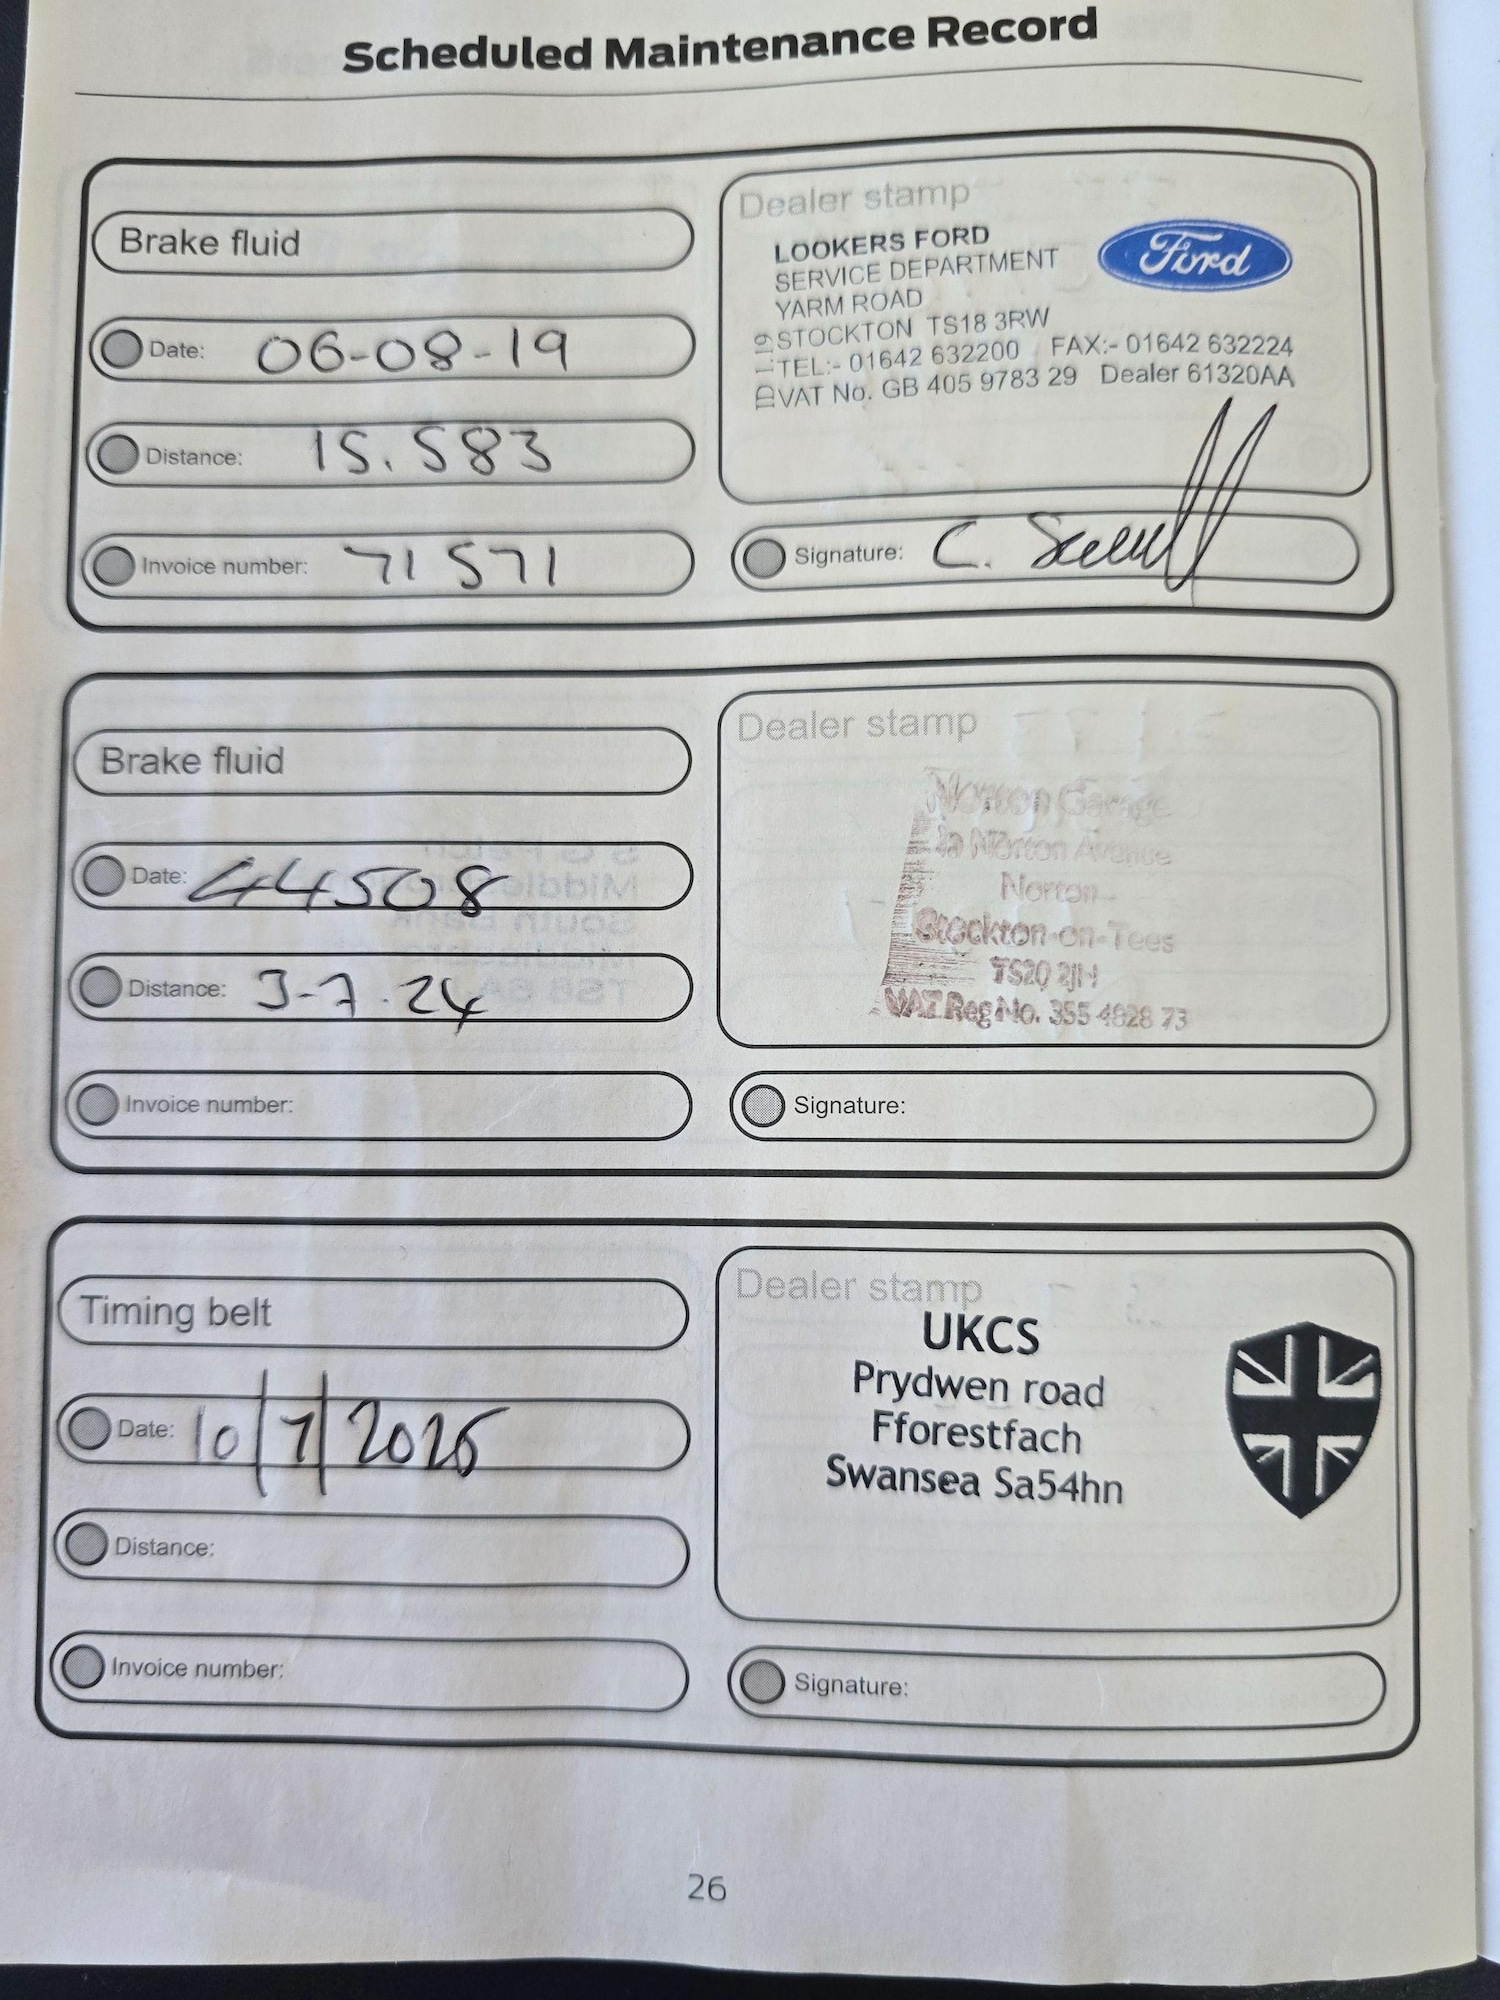 Scheduled Maintenance Record
Brake fluid
Date: 06-08-19
Distance: 15.583
Invoice number: 71571
Dealer stamp
LOOKERS FORD
SERVICE DEPARTMENT
YARM ROAD
STOCKTON TS18 3RW
TEL:- 01642 632200 FAX:- 01642 632224
VAT No. GB 405 9783 29 Dealer 61320AA
Ford
Signature: C.
Brake fluid
Date: 44508
Distance: 3-7.24
Invoice number:
Dealer stamp
Norton Garage
Norton Avenue
Norton
Stockton-on-Tees
TS20 2JH
VAT Reg No. 355 4828 73
Signature:
Timing belt
Date: 10/7/2025
Distance:
Invoice number:
Dealer stamp
UKCS
Prydwen road
Fforestfach
Swansea Sa54hn
Signature:
26